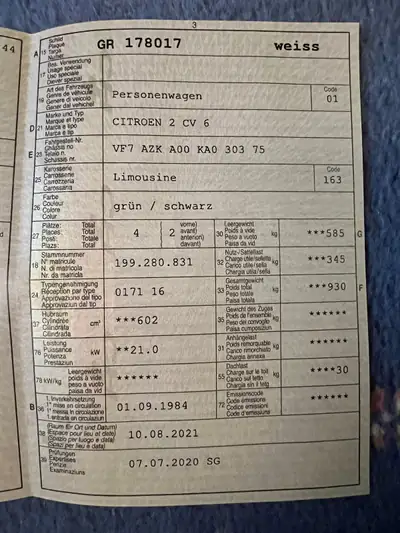 3
44
A 15 Schild Plaque Targa Numer GR 178017 weiss
17 Bes. Verwendung Usage spécial Uso speciale Diever spezial
19 Art des Fahrzeugs Genre de véhicule Genere di veicolo Gener dal vehichel Personenwagen Code 01
D 21 Marke und Typ Marque et type Marca e tipo Marca e tip CITROEN 2 CV 6
E 23 Fahrgestell-Nr. Châssis no Telaio n. Schassis nr. VF7 AZK A00 KA0 303 75
25 Karosserie Carrosserie Carrozzeria Carossaria Limousine Code 163
26 Farbe Couleur Colore Color grün / schwarz
27 Plätze: Total Places: Total Posti: Totale Plazs: Total 4 2 vorne) avant) anteriori) davant) 30 Leergewicht Poids à vide Peso a vuoto Paisa da vid kg ***585 G
18 Stammnummer N° matricule N. di matricola Nr. da matricla 199.280.831 32 Nutz-/Sattellast Charge utile/sellette Carico utile/sella Chargia utila/sella kg ***345
24 Typengenehmigung Réception par type Approvazione del tipo Approvaziun dal tip 0171 16 33 Gesamtgewicht Poids total Peso totale Paisa totala kg ***930 F
37 Hubraum Cylindrée Cilindrata Cilindrada cm³ ***602 35 Gewicht des Zuges Poids de l'ensemble Peso del convoglio Paisa cumposiziun kg ******
76 Leistung Puissance Potenza Prestaziun kW **21.0 31 Anhängelast Poids remorquable Carico rimorchiato Chargia annexa kg ******
78 kW/kg Leergewicht poids à vide peso a vuoto paisa da vid ****** 55 Dachlast Charge sur le toit Carico sul tetto Chargia sin il tetg kg ****30
B 36 1. Inverkehrsetzung 1ère mise en circulation 1a messa in circolazione 1. entrada en circulaziun 01.09.1984 72 Emissionscode Code émissions Codice emissioni Code d'emissiuns ******
38 (Raum für Ort und Datum) (Espace pour lieu et date) (Spazio per luogo e data) (Spazi per lieu e data) 10.08.2021
39 Prüfungen Expertises Perizie Examinaziuns 07.07.2020 SG